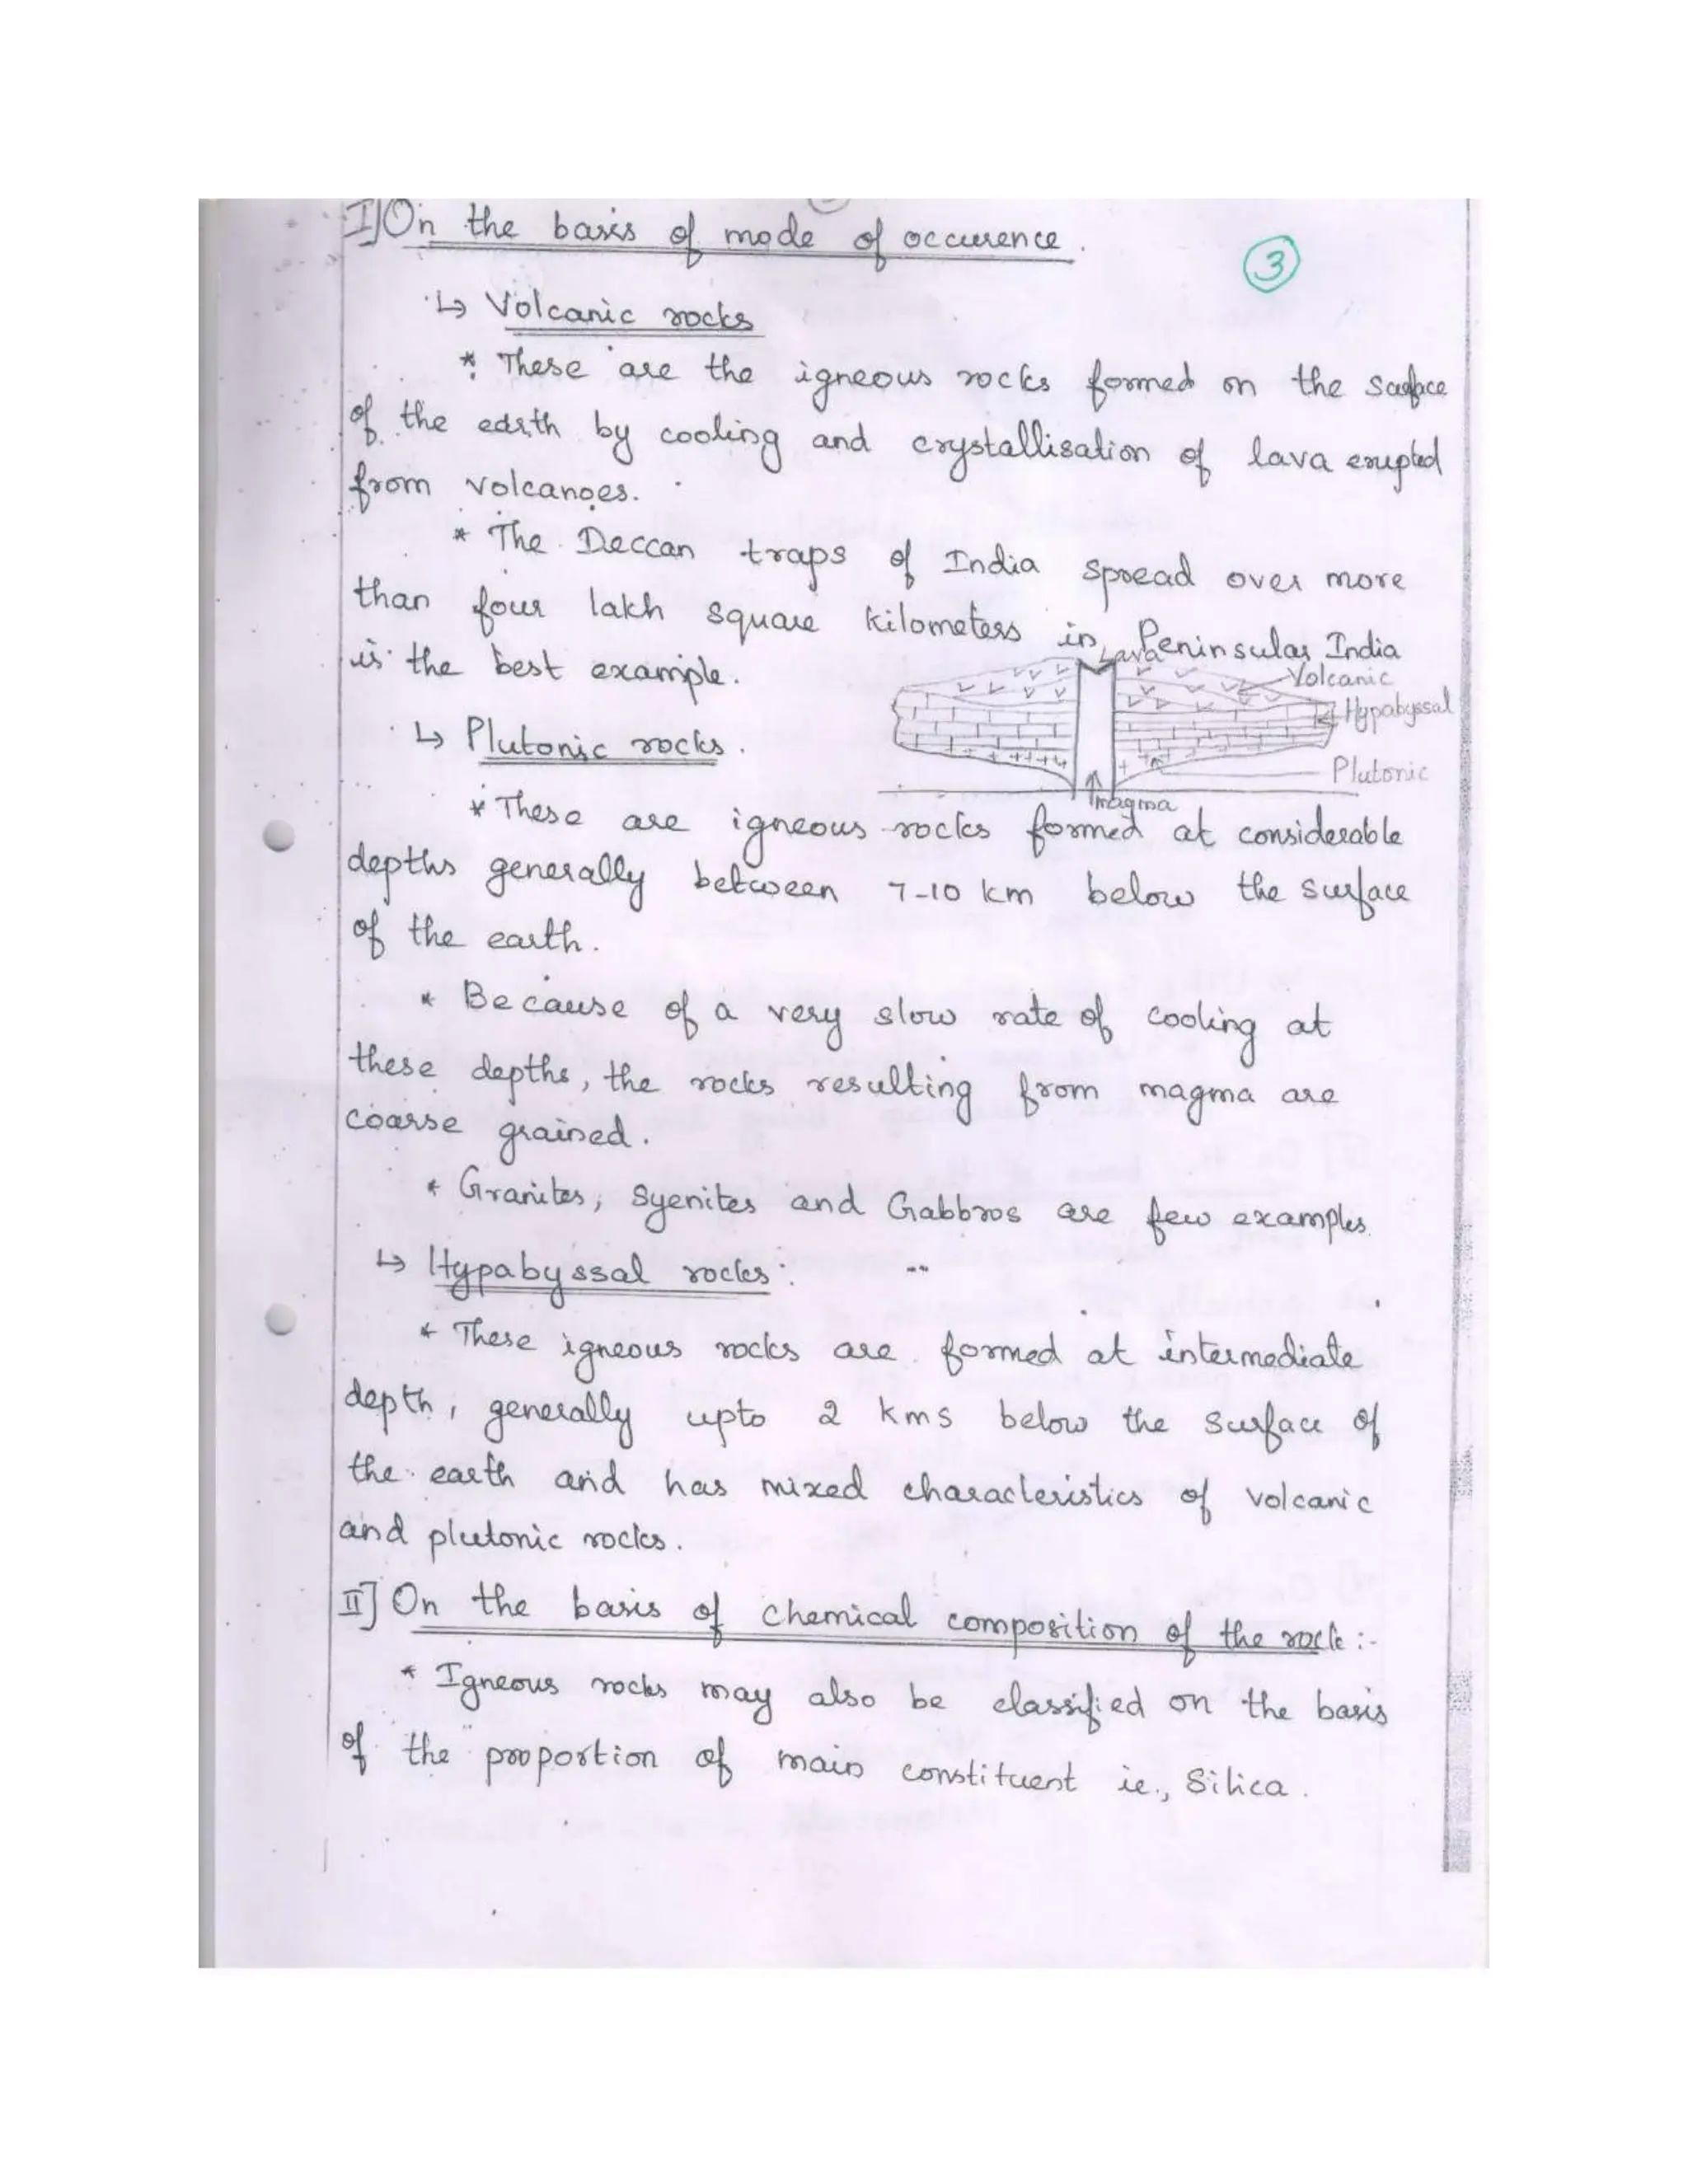 I] On the basis of mode of occurence.
3
↳ Volcanic rocks
* These are the igneous rocks formed on the surface
of the earth by cooling and crystallisation of lava erupted
from volcanoes.
* The Deccan traps of India spread over more
than four lakh square kilometers in Peninsular India
is the best example.
Lava
Volcanic
Hypabyssal
Plutonic
magma
↳ Plutonic rocks.
* These are igneous rocks formed at considerable
depths generally between 7-10 km below the surface
of the earth.
* Because of a very slow rate of cooling at
these depths, the rocks resulting from magma are
coarse grained.
* Granites, Syenites and Gabbros are few examples.
↳ Hypabyssal rocks:
* These igneous rocks are formed at intermediate
depth, generally upto 2 kms below the surface of
the earth and has mixed characteristics of volcanic
and plutonic rocks.
II] On the basis of chemical composition of the rock :-
* Igneous rocks may also be classified on the basis
of the proportion of main constituent ie., Silica.